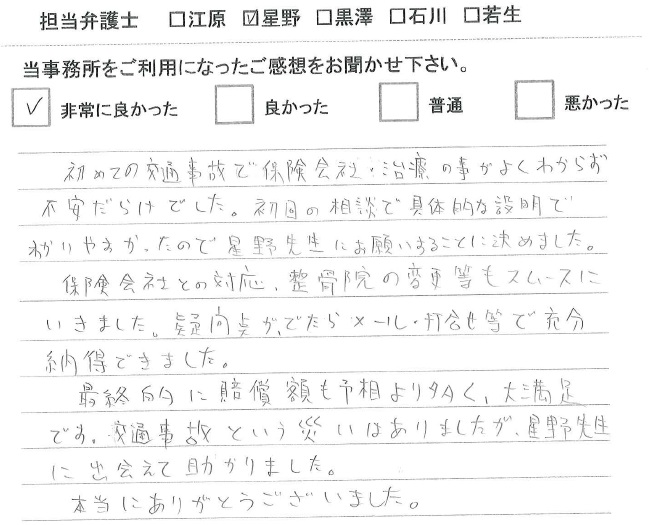 担当弁護士 □江原 ☑星野 □黒澤 □石川 □若生
当事務所をご利用になったご感想をお聞かせ下さい。
☑ 非常に良かった □ 良かった □ 普通 □ 悪かった
初めての交通事故で保険会社・治療の事がよくわからず
不安だらけでした。初回の相談で具体的な説明で
わかりやすかったので星野先生にお願いすることに決めました。
保険会社との対応、整骨院の変更等もスムースに
いきました。疑問点がでたらメール・打合せ等で充分
納得できました。
最終的に賠償額も予想より多く、大満足
です。交通事故という災いはありましたが、星野先生
に出会えて助かりました。
本当にありがとうございました。